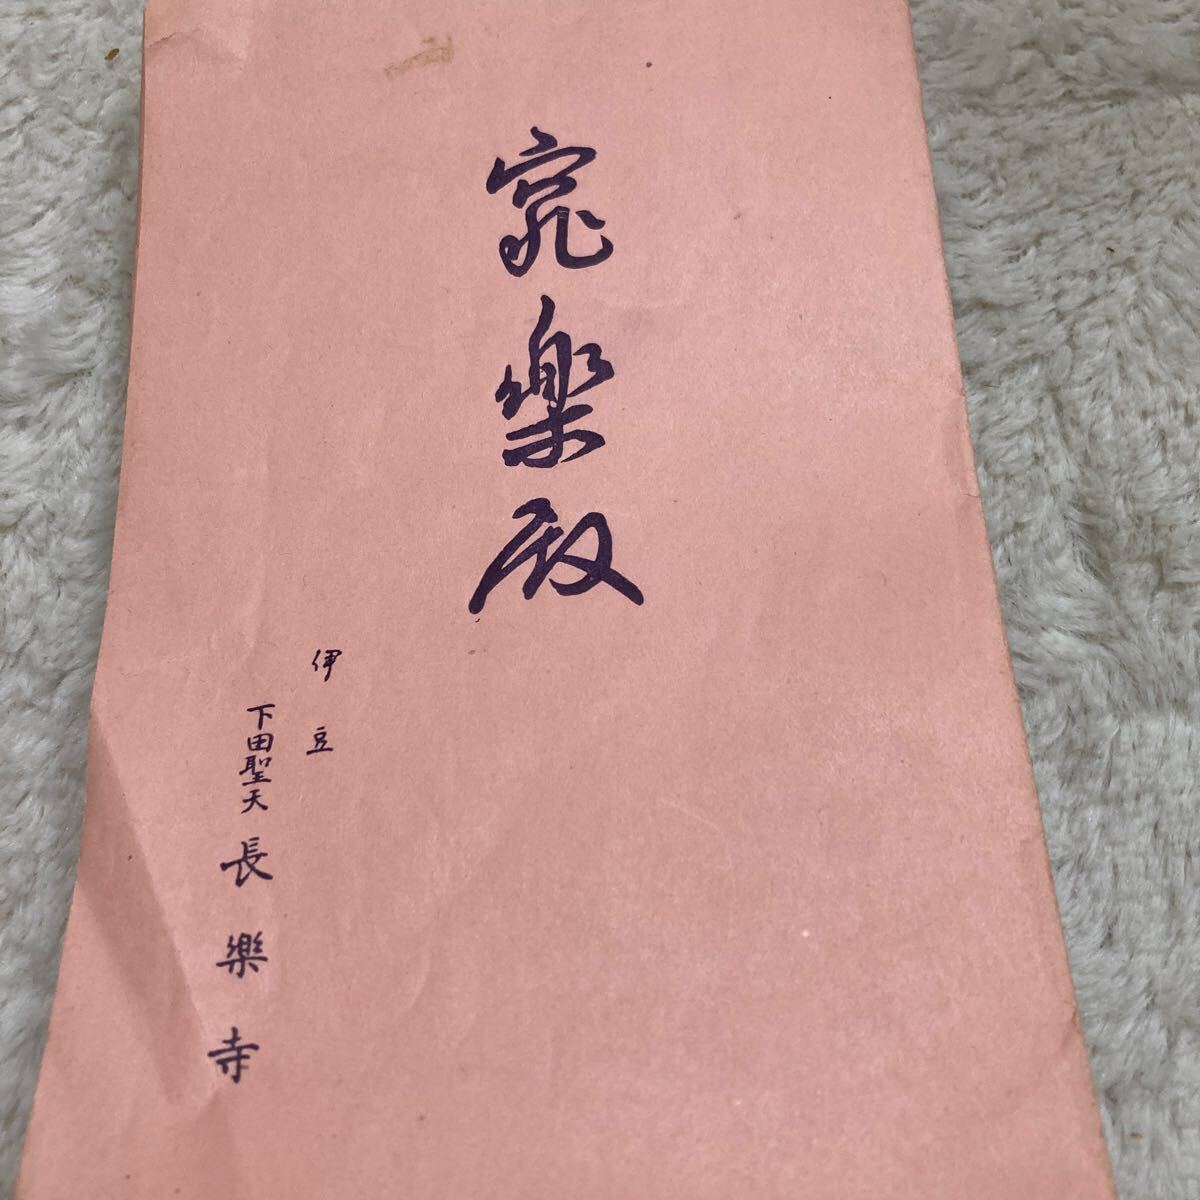 樂殿
伊豆
下田聖天 長樂寺